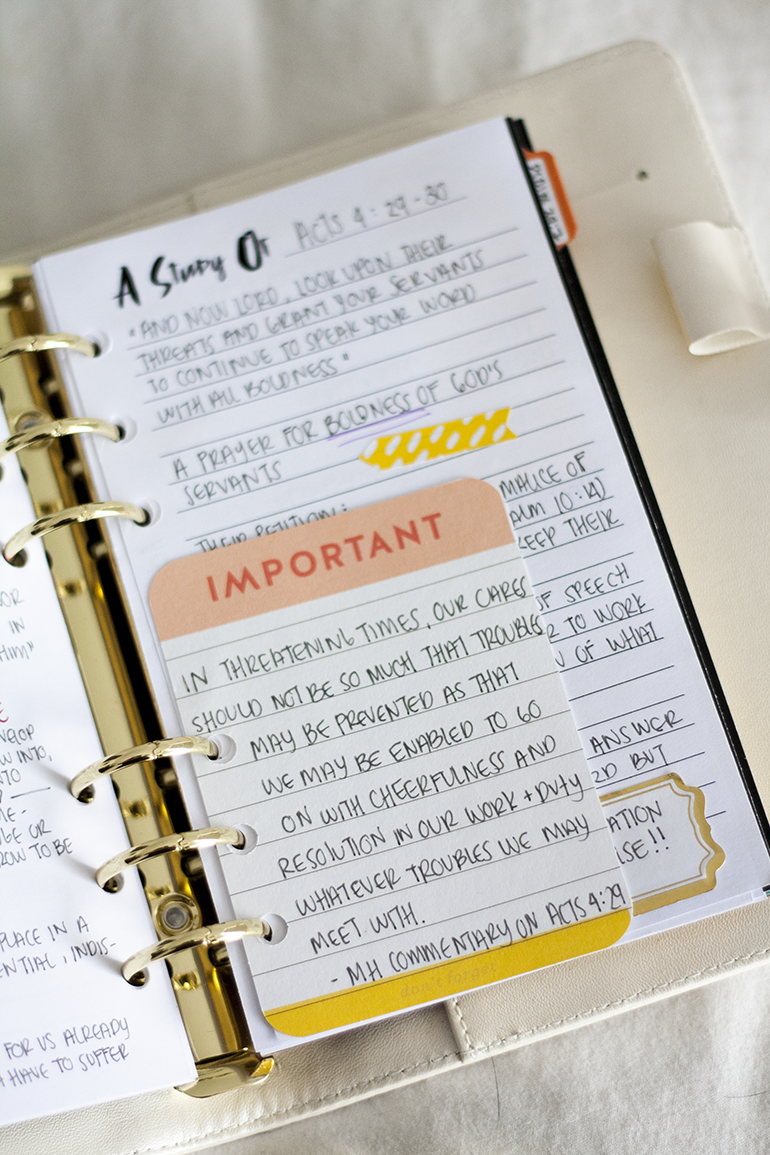 A STUDY OF ACTS 4:29-30
"AND NOW LORD, LOOK UPON THEIR
THREATS AND GRANT YOUR SERVANTS
TO CONTINUE TO SPEAK YOUR WORD
WITH ALL BOLDNESS"
A PRAYER FOR BOLDNESS OF GOD'S
SERVANTS
THEIR PETITION:
MALICE OF
ALM 10:14)
KEEP THEIR
OF SPEECH
TO WORK
OF WHAT
ANSWER
BUT
ATION
LSE!!
IMPORTANT
IN THREATENING TIMES, OUR CARES
SHOULD NOT BE SO MUCH THAT TROUBLES
MAY BE PREVENTED AS THAT
WE MAY BE ENABLED TO GO
ON WITH CHEERFULNESS AND
RESOLUTION IN OUR WORK + DUTY
WHATEVER TROUBLES WE MAY
MEET WITH.
- MH COMMENTARY ON ACTS 4:29
don't forget
OR
IN
HIM"
VELOP
W INTO,
NTO
ME-
GE OR
ROW TO BE
PLACE IN A
ENTIAL, INDIS-
FOR US ALREADY
HAVE TO SUFFER